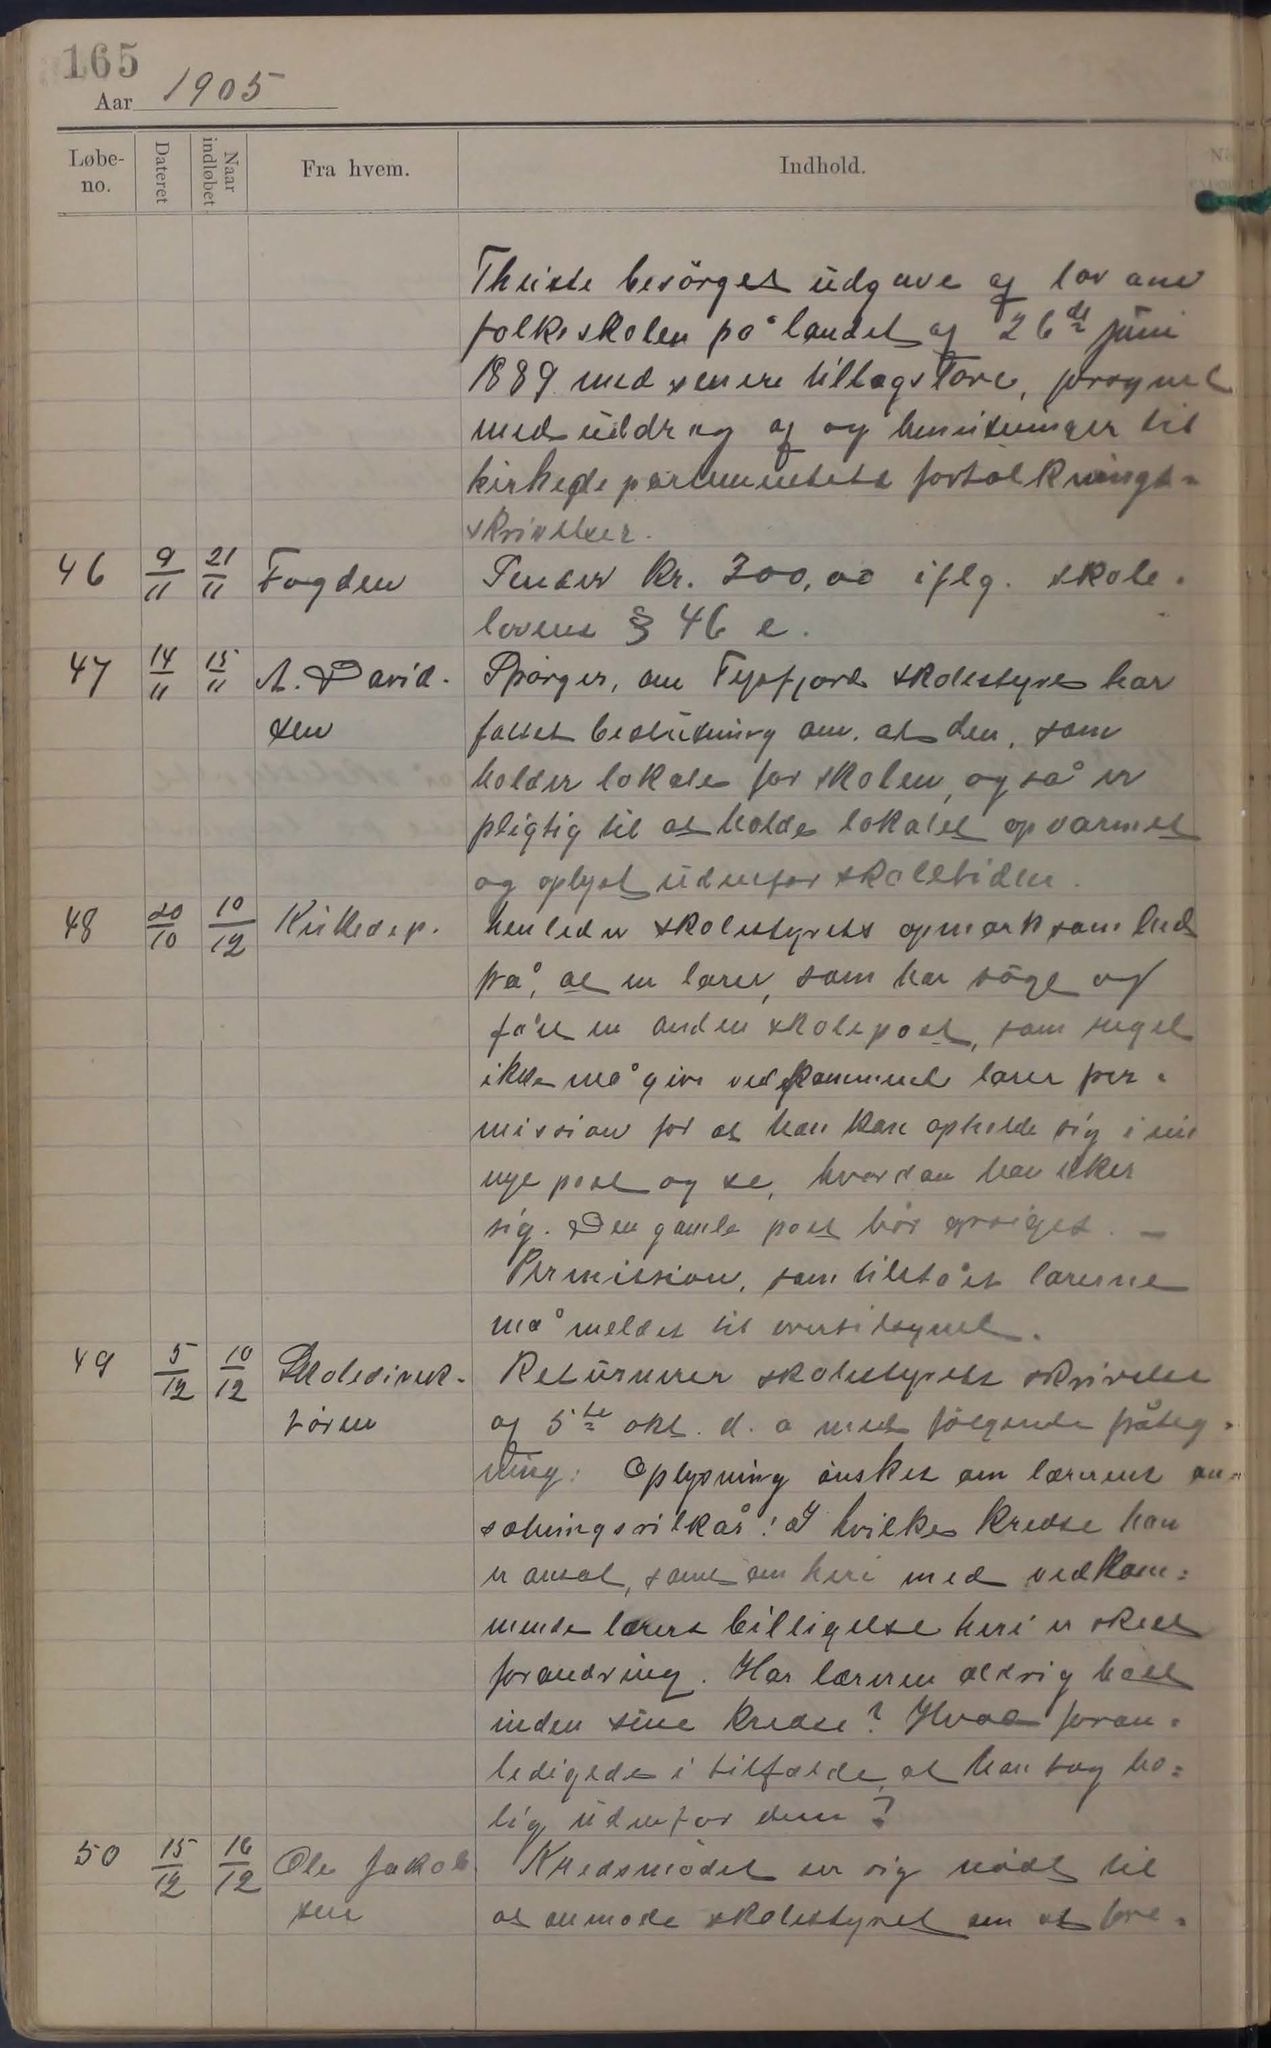 165
Aar 1905
Løbe-
no.
Dateret
Naar
indløbet
Fra hvem.
Indhold.
Theiste besörget üdgave af lov om
folkeskolen på landet af 26de jüni
1889 med senere tillægslove, forsynet
med üddrag af og henvisninger til
kirkedepartementets fortolknings-
skrivelser.
46 9/11 21/11 Fogden Sender kr. 300,00 iflg. skole-
lovens § 46 e.
47 14/11 15/11 A. David- Spörger, om Tysfjord skolestyre har
sen fattet beslütning om, at den, som
holder lokale for skolen, også er
pligtig til at holde lokalet opvarmet
og oplyst üdenfor skoletiden.
48 20/10 10/12 Kirkedep. henleder skolestyrets opmærksomhed
på, at en lærer, som har sögt og
fåt en anden skolepost, som regel
ikke må give vedkommende lærer per-
mission for at han kan opholde sig i sin
nye post og se, hvordan han liker
sig. Den gamle post bör opsiges. —
Permission, som tilståes lærerne
må meldes til overtilsynet.
49 5/12 10/12 Skoledirek- Retürnerer skolestyrets skrivelse
tören af 5te okt. d. a med fölgende påteg-
ning: Oplysning önskes om lærerens an-
sætningsvilkår! I hvilke kredse han
er ansat, samt om heri med vedkom-
mende lærers billigelse heri er skeet
forandring. Har læreren aldrig boet
inden sine kredse? Hvad foran-
ledigede i tilfælde, at han tog bo-
lig üdenfor dem?
50 15/12 16/12 Ole Jakob- Kredsmödet ser sig nödt til
sen at anmode skolestyret om at fore-